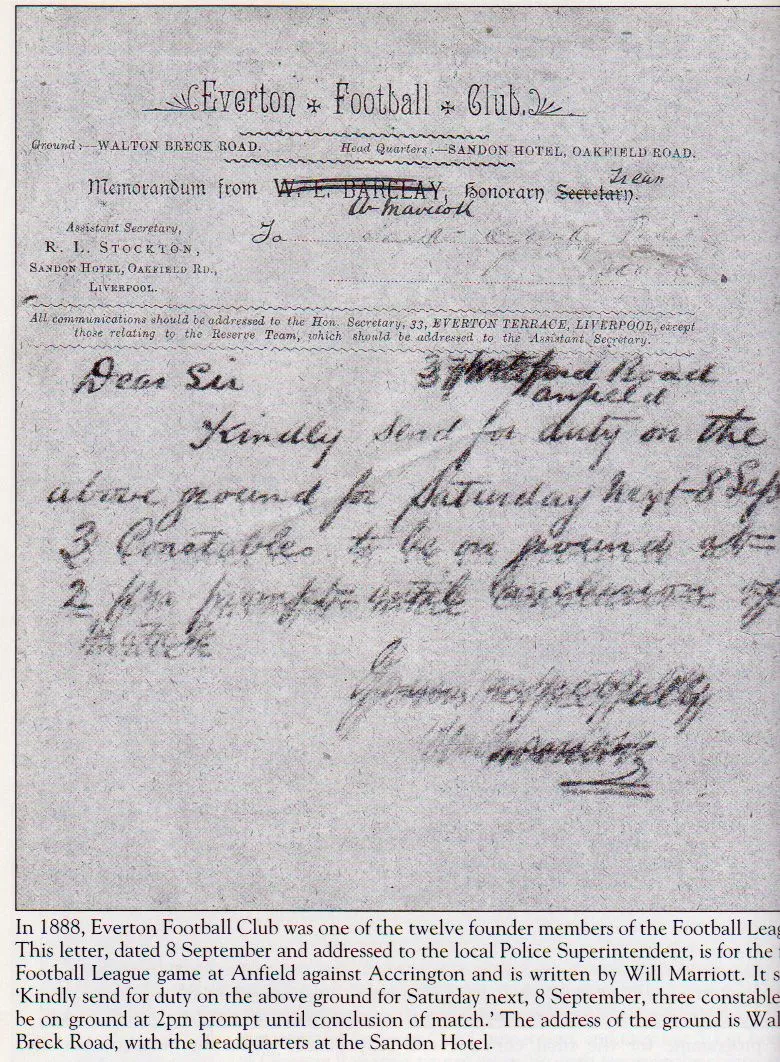 Everton Football Club.
Ground :—WALTON BRECK ROAD. Head Quarters :—SANDON HOTEL, OAKFIELD ROAD.
Memorandum from W. E. BARCLAY, Honorary Secretary.
Assistant Secretary,
To
R. L. STOCKTON,
SANDON HOTEL, OAKFIELD RD.,
LIVERPOOL.
All communications should be addressed to the Hon. Secretary, 33, EVERTON TERRACE, LIVERPOOL, except
those relating to the Reserve Team, which should be addressed to the Assistant Secretary.
Dear Sir Road
Anfield
Kindly send for duty on the
above ground for Saturday next 8 Sep
3 Constables to be on ground at
2 pm prompt until conclusion of
match
Yours respectfully
In 1888, Everton Football Club was one of the twelve founder members of the Football Leag
This letter, dated 8 September and addressed to the local Police Superintendent, is for the
Football League game at Anfield against Accrington and is written by Will Marriott. It s
'Kindly send for duty on the above ground for Saturday next, 8 September, three constable
be on ground at 2pm prompt until conclusion of match.' The address of the ground is Wal
Breck Road, with the headquarters at the Sandon Hotel.